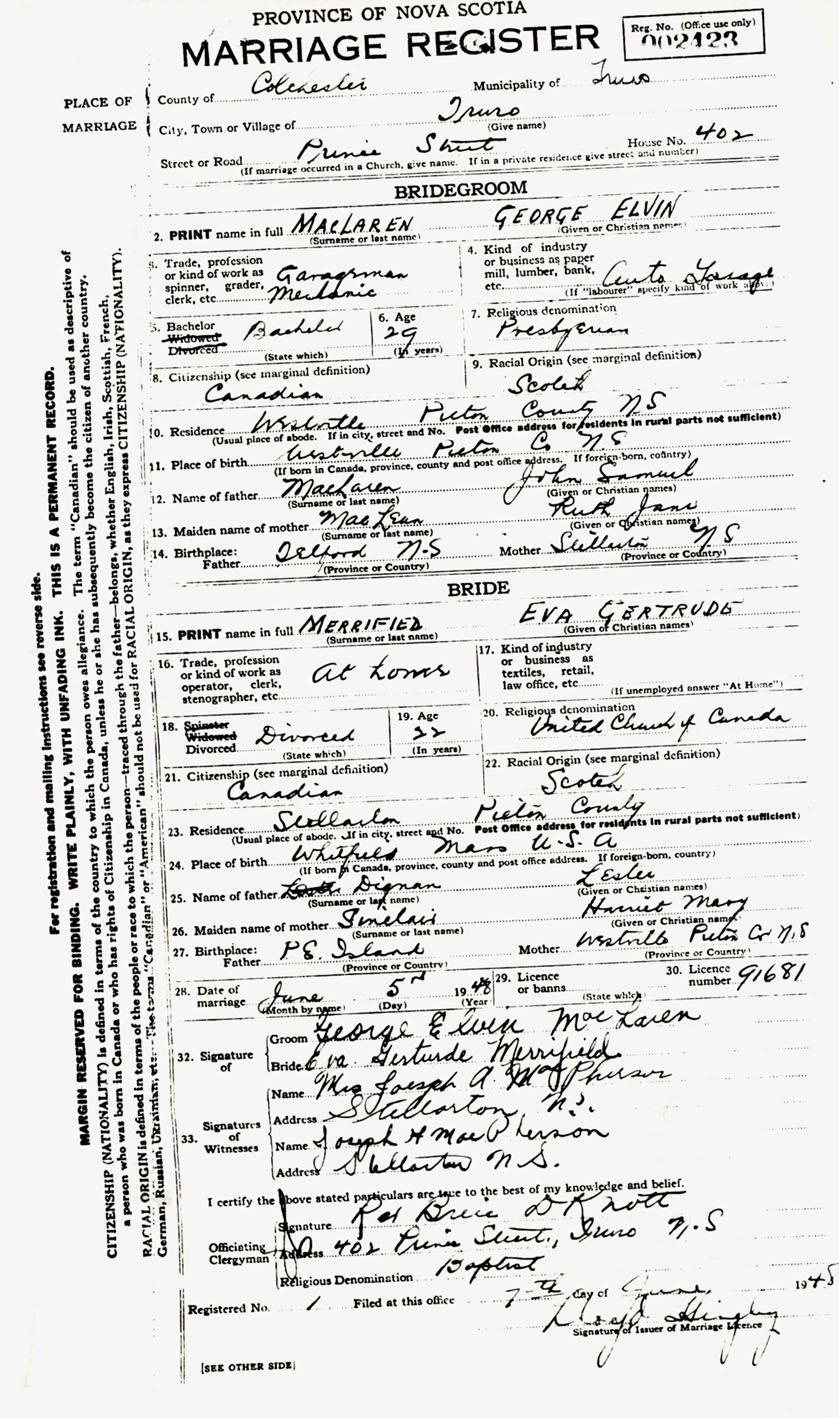 PROVINCE OF NOVA SCOTIA
MARRIAGE REGISTER
Reg. No. (Office use only)
002423
PLACE OF MARRIAGE
County of Colchester Municipality of Truro
City, Town or Village of Truro
(Give name)
Street or Road Prince Street House No. 402
(If marriage occurred in a Church, give name. If in a private residence give street and number)
BRIDEGROOM
2. PRINT name in full MACLAREN GEORGE ELVIN
(Surname or last name) (Given or Christian names)
3. Trade, profession or kind of work as spinner, grader, clerk, etc. Garageman Mechanic
4. Kind of industry or business as paper mill, lumber, bank, etc. Auto Garage
(If "labourer" specify kind of work above)
5. Bachelor Widowed Divorced Bachelor
(State which)
6. Age 29
(In years)
7. Religious denomination
Presbyterian
8. Citizenship (see marginal definition)
Canadian
9. Racial Origin (see marginal definition)
Scotch
10. Residence Westville Pictou County N S
(Usual place of abode. If in city, street and No. Post Office address for residents in rural parts not sufficient)
11. Place of birth Westville Pictou Co N.S
(If born in Canada, province, county and post office address. If foreign-born, country)
12. Name of father MacLaren John Samuel
(Surname or last name) (Given or Christian names)
13. Maiden name of mother MacLean Ruth Jane
(Surname or last name) (Given or Christian names)
14. Birthplace: Father Telford N-S Mother Stellarton N S
(Province or Country) (Province or Country)
BRIDE
15. PRINT name in full MERRIFIED EVA GERTRUDE
(Surname or last name) (Given or Christian names)
16. Trade, profession or kind of work as operator, clerk, stenographer, etc. At home
17. Kind of industry or business as textiles, retail, law office, etc.
(If unemployed answer "At Home")
18. Spinster Widowed Divorced Divorced
(State which)
19. Age 22
(In years)
20. Religious denomination
United Church of Canada
21. Citizenship (see marginal definition)
Canadian
22. Racial Origin (see marginal definition)
Scotch
23. Residence Stellarton Pictou County
(Usual place of abode. If in city, street and No. Post Office address for residents in rural parts not sufficient)
24. Place of birth Whitfield Mass U.S.A
(If born in Canada, province, county and post office address. If foreign-born, country)
25. Name of father Dignan Lester
(Surname or last name) (Given or Christian names)
26. Maiden name of mother Sinclair Harriet Mary
(Surname or last name) (Given or Christian name)
27. Birthplace: Father P.E. Island Mother Westville Pictou Co N.S
(Province or Country) (Province or Country)
28. Date of marriage June 5th 1948
(Month by name) (Day) (Year
29. Licence or banns
(State which)
30. Licence number 91681
32. Signature of
Groom George Elvin MacLaren
Bride Eva Gerturde Merrifield
33. Signatures of Witnesses
Name Mrs Joesph A. MacPherson
Address Stellarton, N.S.
Name Joseph A MacPherson
Address Stellarton N.S.
I certify the above stated particulars are true to the best of my knowledge and belief.
Officiating Clergyman
Signature Rev D Knott
Address 402 Prince Street, Truro N.S
Religious Denomination Baptist
Registered No. 1 Filed at this office 7th day of June, 1948
Signature of Issuer of Marriage Licence
[SEE OTHER SIDE]
For registration and mailing instructions see reverse side.
MARGIN RESERVED FOR BINDING. WRITE PLAINLY, WITH UNFADING INK. THIS IS A PERMANENT RECORD.
CITIZENSHIP (NATIONALITY) is defined in terms of the country to which the person owes allegiance. The term "Canadian" should be used as descriptive of
a person who was born in Canada or who has rights of Citizenship in Canada, unless he or she has subsequently become the citizen of another country.
RACIAL ORIGIN is defined in terms of the people or race to which the person—traced through the father—belongs, whether English, Irish, Scottish, French,
German, Russian, Ukrainian, etc. The terms "Canadian" or "American" should not be used for RACIAL ORIGIN, as they express CITIZENSHIP (NATIONALITY).